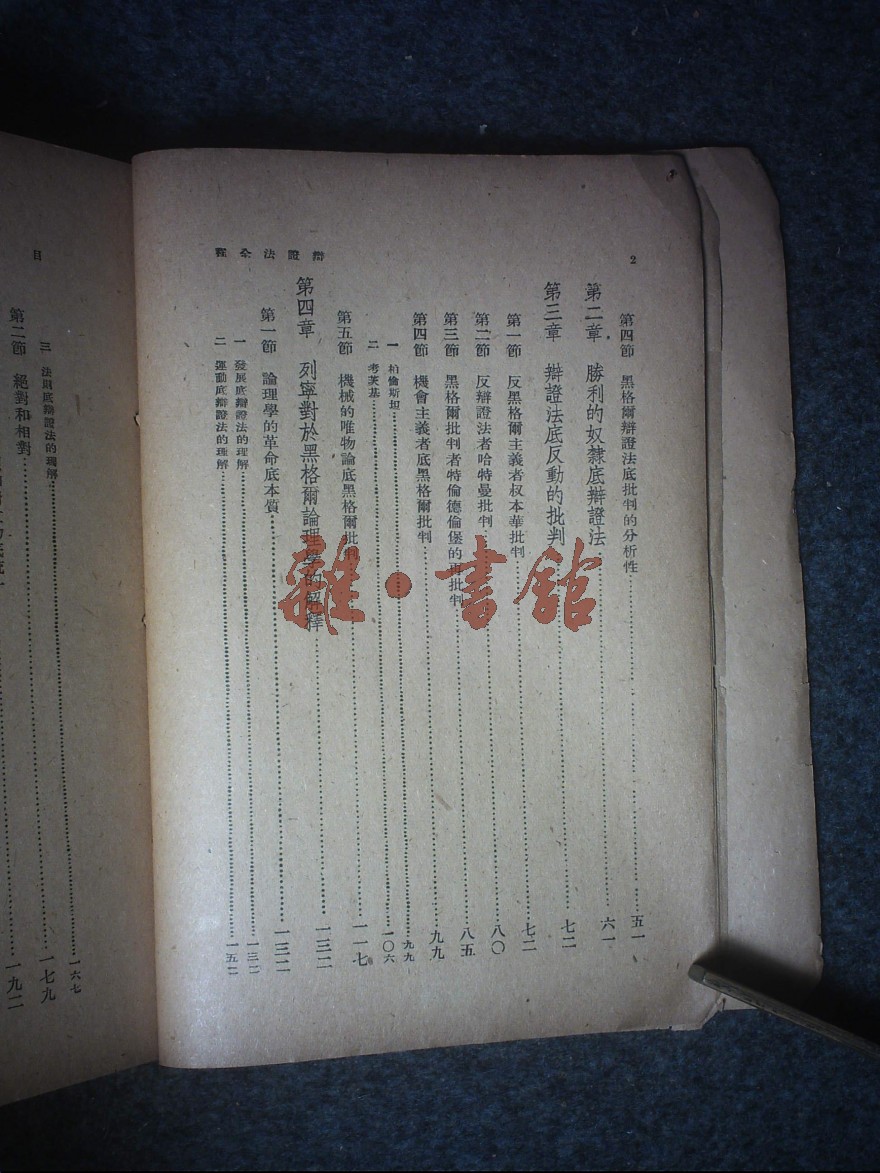 2
辯證法全程
第四節 黑格爾辯證法底批判的分析性 五一
第二章 勝利的奴隸底辯證法 六一
第三章 辯證法底反動的批判 七二
第一節 反黑格爾主義者叔本華批判 七二
第二節 反辯證法者哈特曼批判 八〇
第三節 黑格爾批判者特倫德倫堡的再批判 八五
第四節 機會主義者底黑格爾批判 九九
一 柏倫斯坦 九九
二 考茨基 一〇六
第五節 機械的唯物論底黑格爾批判 一一七
第四章 列寧對於黑格爾論理學的解釋 一三二
第一節 論理學的革命底本質 一三二
一 發展底辯證法的理解 一三二
二 運動底辯證法的理解 一五二
目
三 法則底辯證法的理解 一六七
一七九
第二節 絕對和相對
一九二
雜·書館